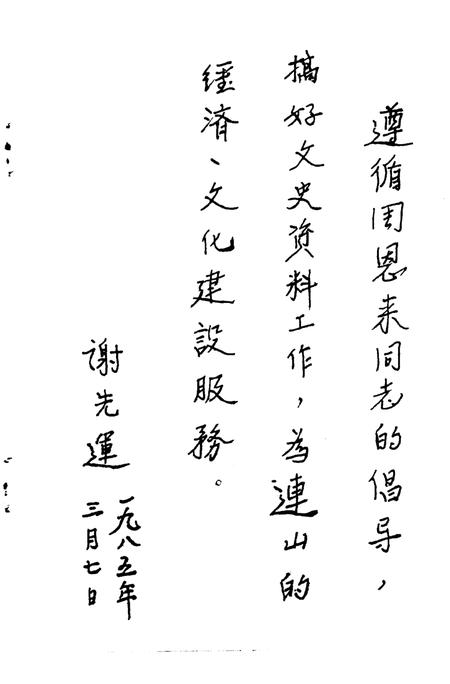 遵循周恩来同志的倡导，
搞好文史资料工作，为連山的
經濟、文化建設服務。
谢先運
一九八五年
三月七日